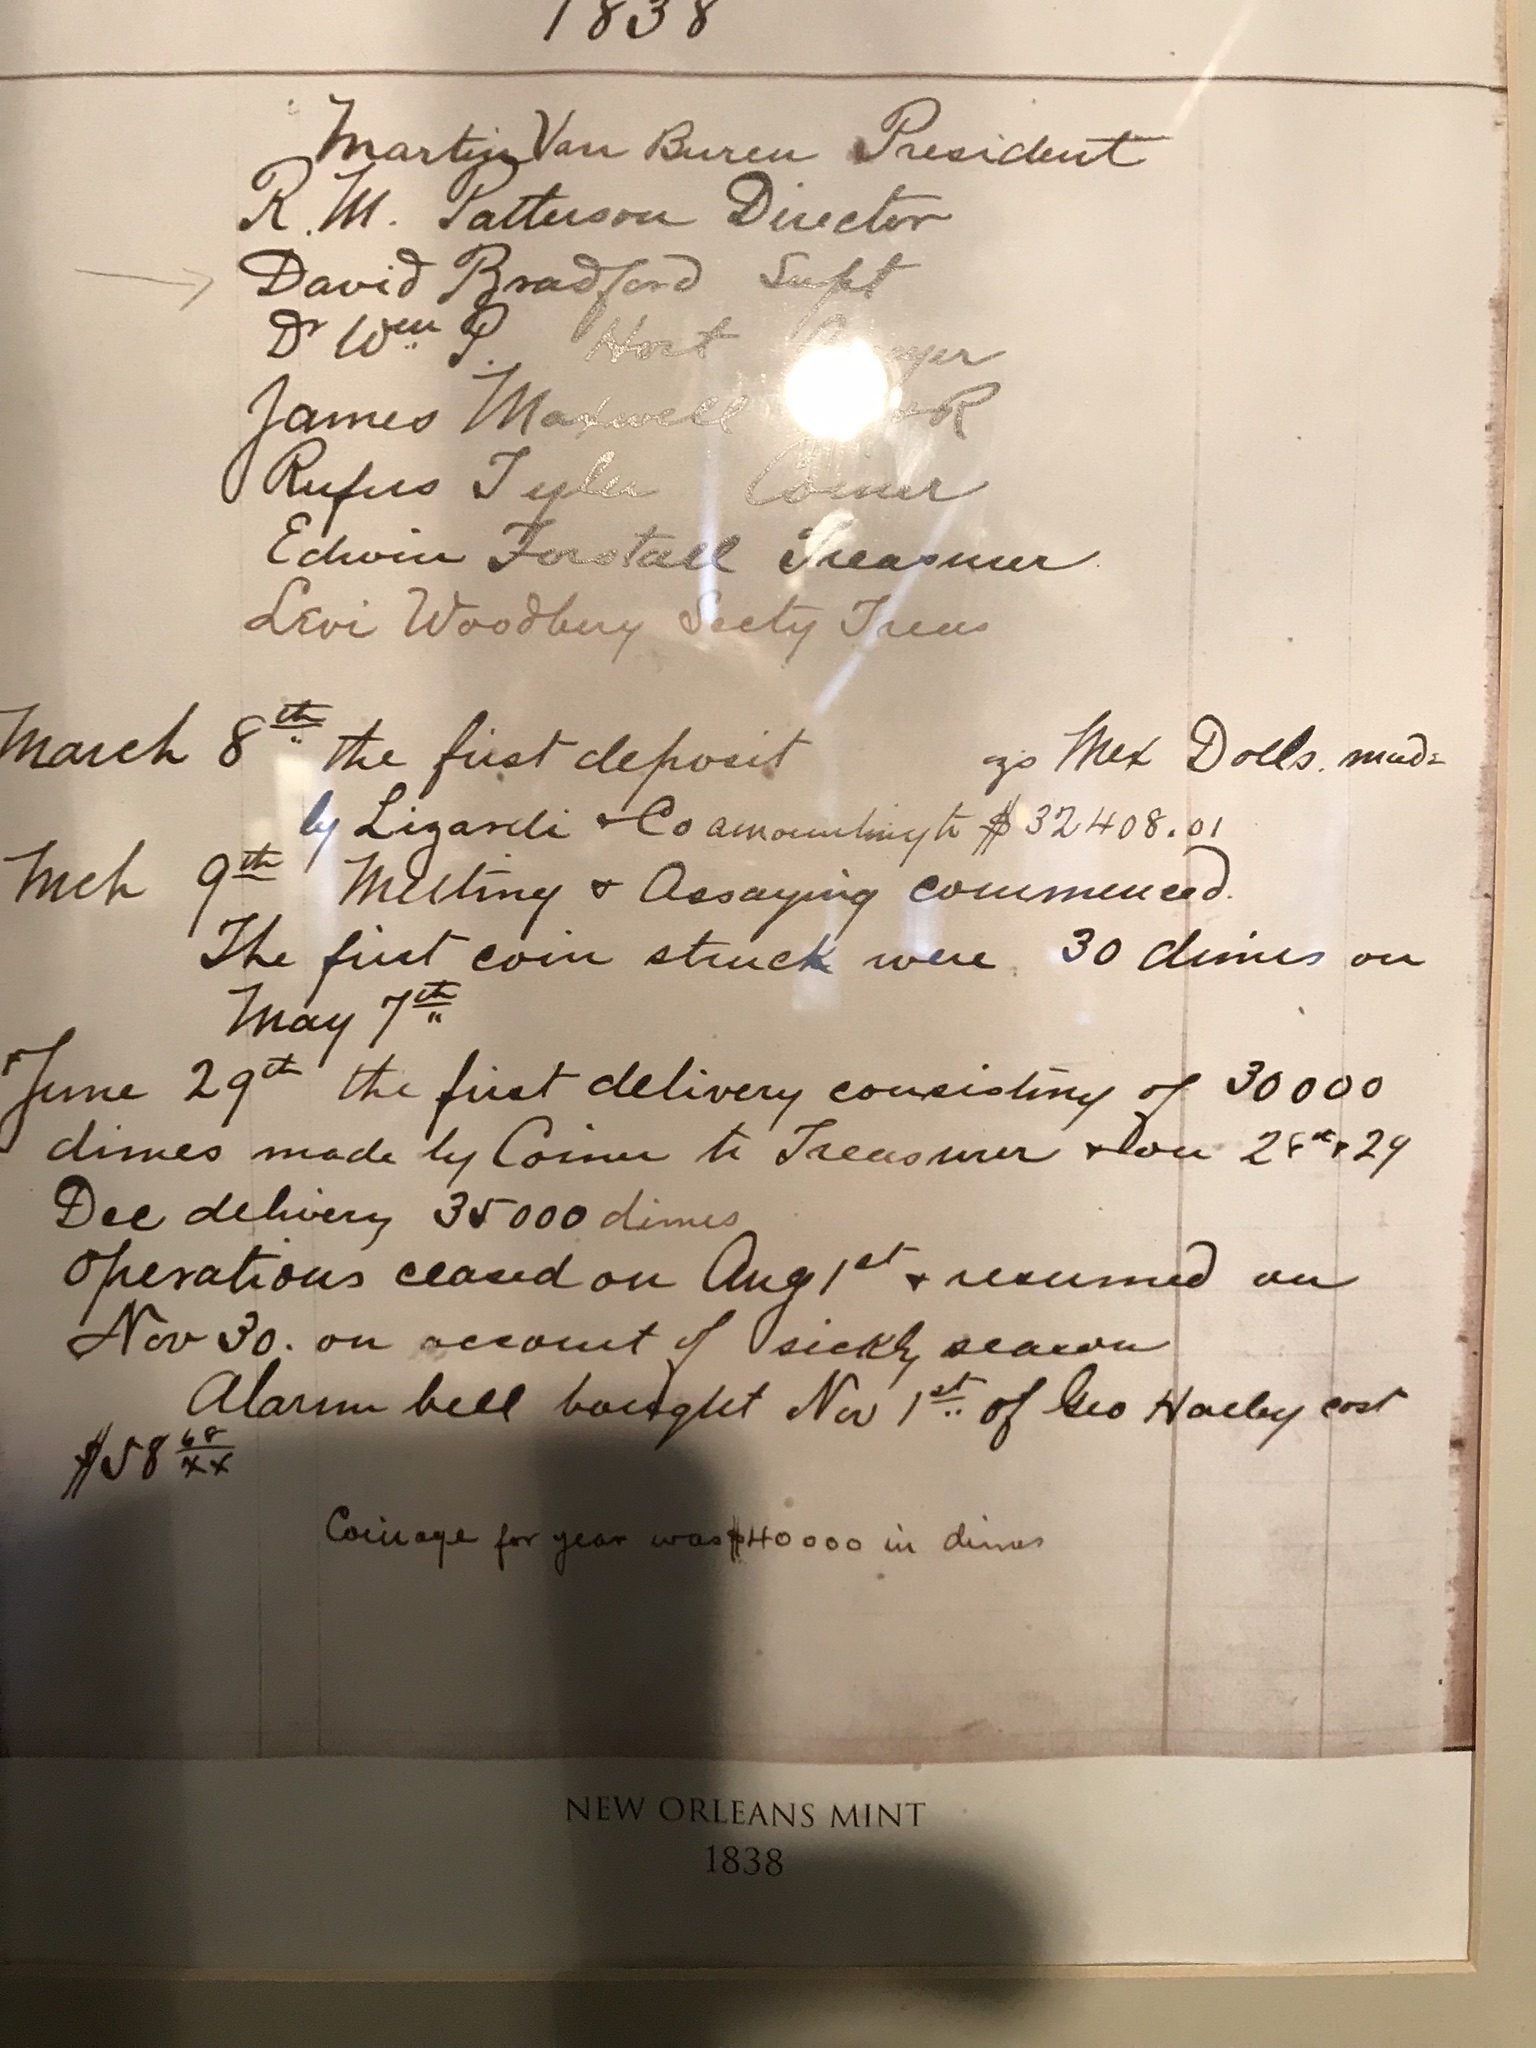 1838
Martin Van Buren President
R. M. Patterson Director
David Bradford Supt
Dr Wm P. Hort
James Maxwell
Rufus Tyler Coiner
Edwin Forstall Treasurer
Levi Woodbury Secty Treas
March 8th the first deposit Mex Dolls. made
by Lizardi & Co amounting to $32408.01
Mch 9th Melting & Assaying commenced.
The first coin struck were 30 dimes on
May 7th
June 29th the first delivery consisting of 30000
dimes made by Coiner to Treasurer & on 28th & 29
Dec delivery 35000 dimes
Operations ceased on Aug 1st & resumed on
Nov 30. on account of sickly season
Alarm bell bought Nov 1st of Geo Holby cost
$58 68/xx
Coinage for year was $40000 in dimes
NEW ORLEANS MINT
1838